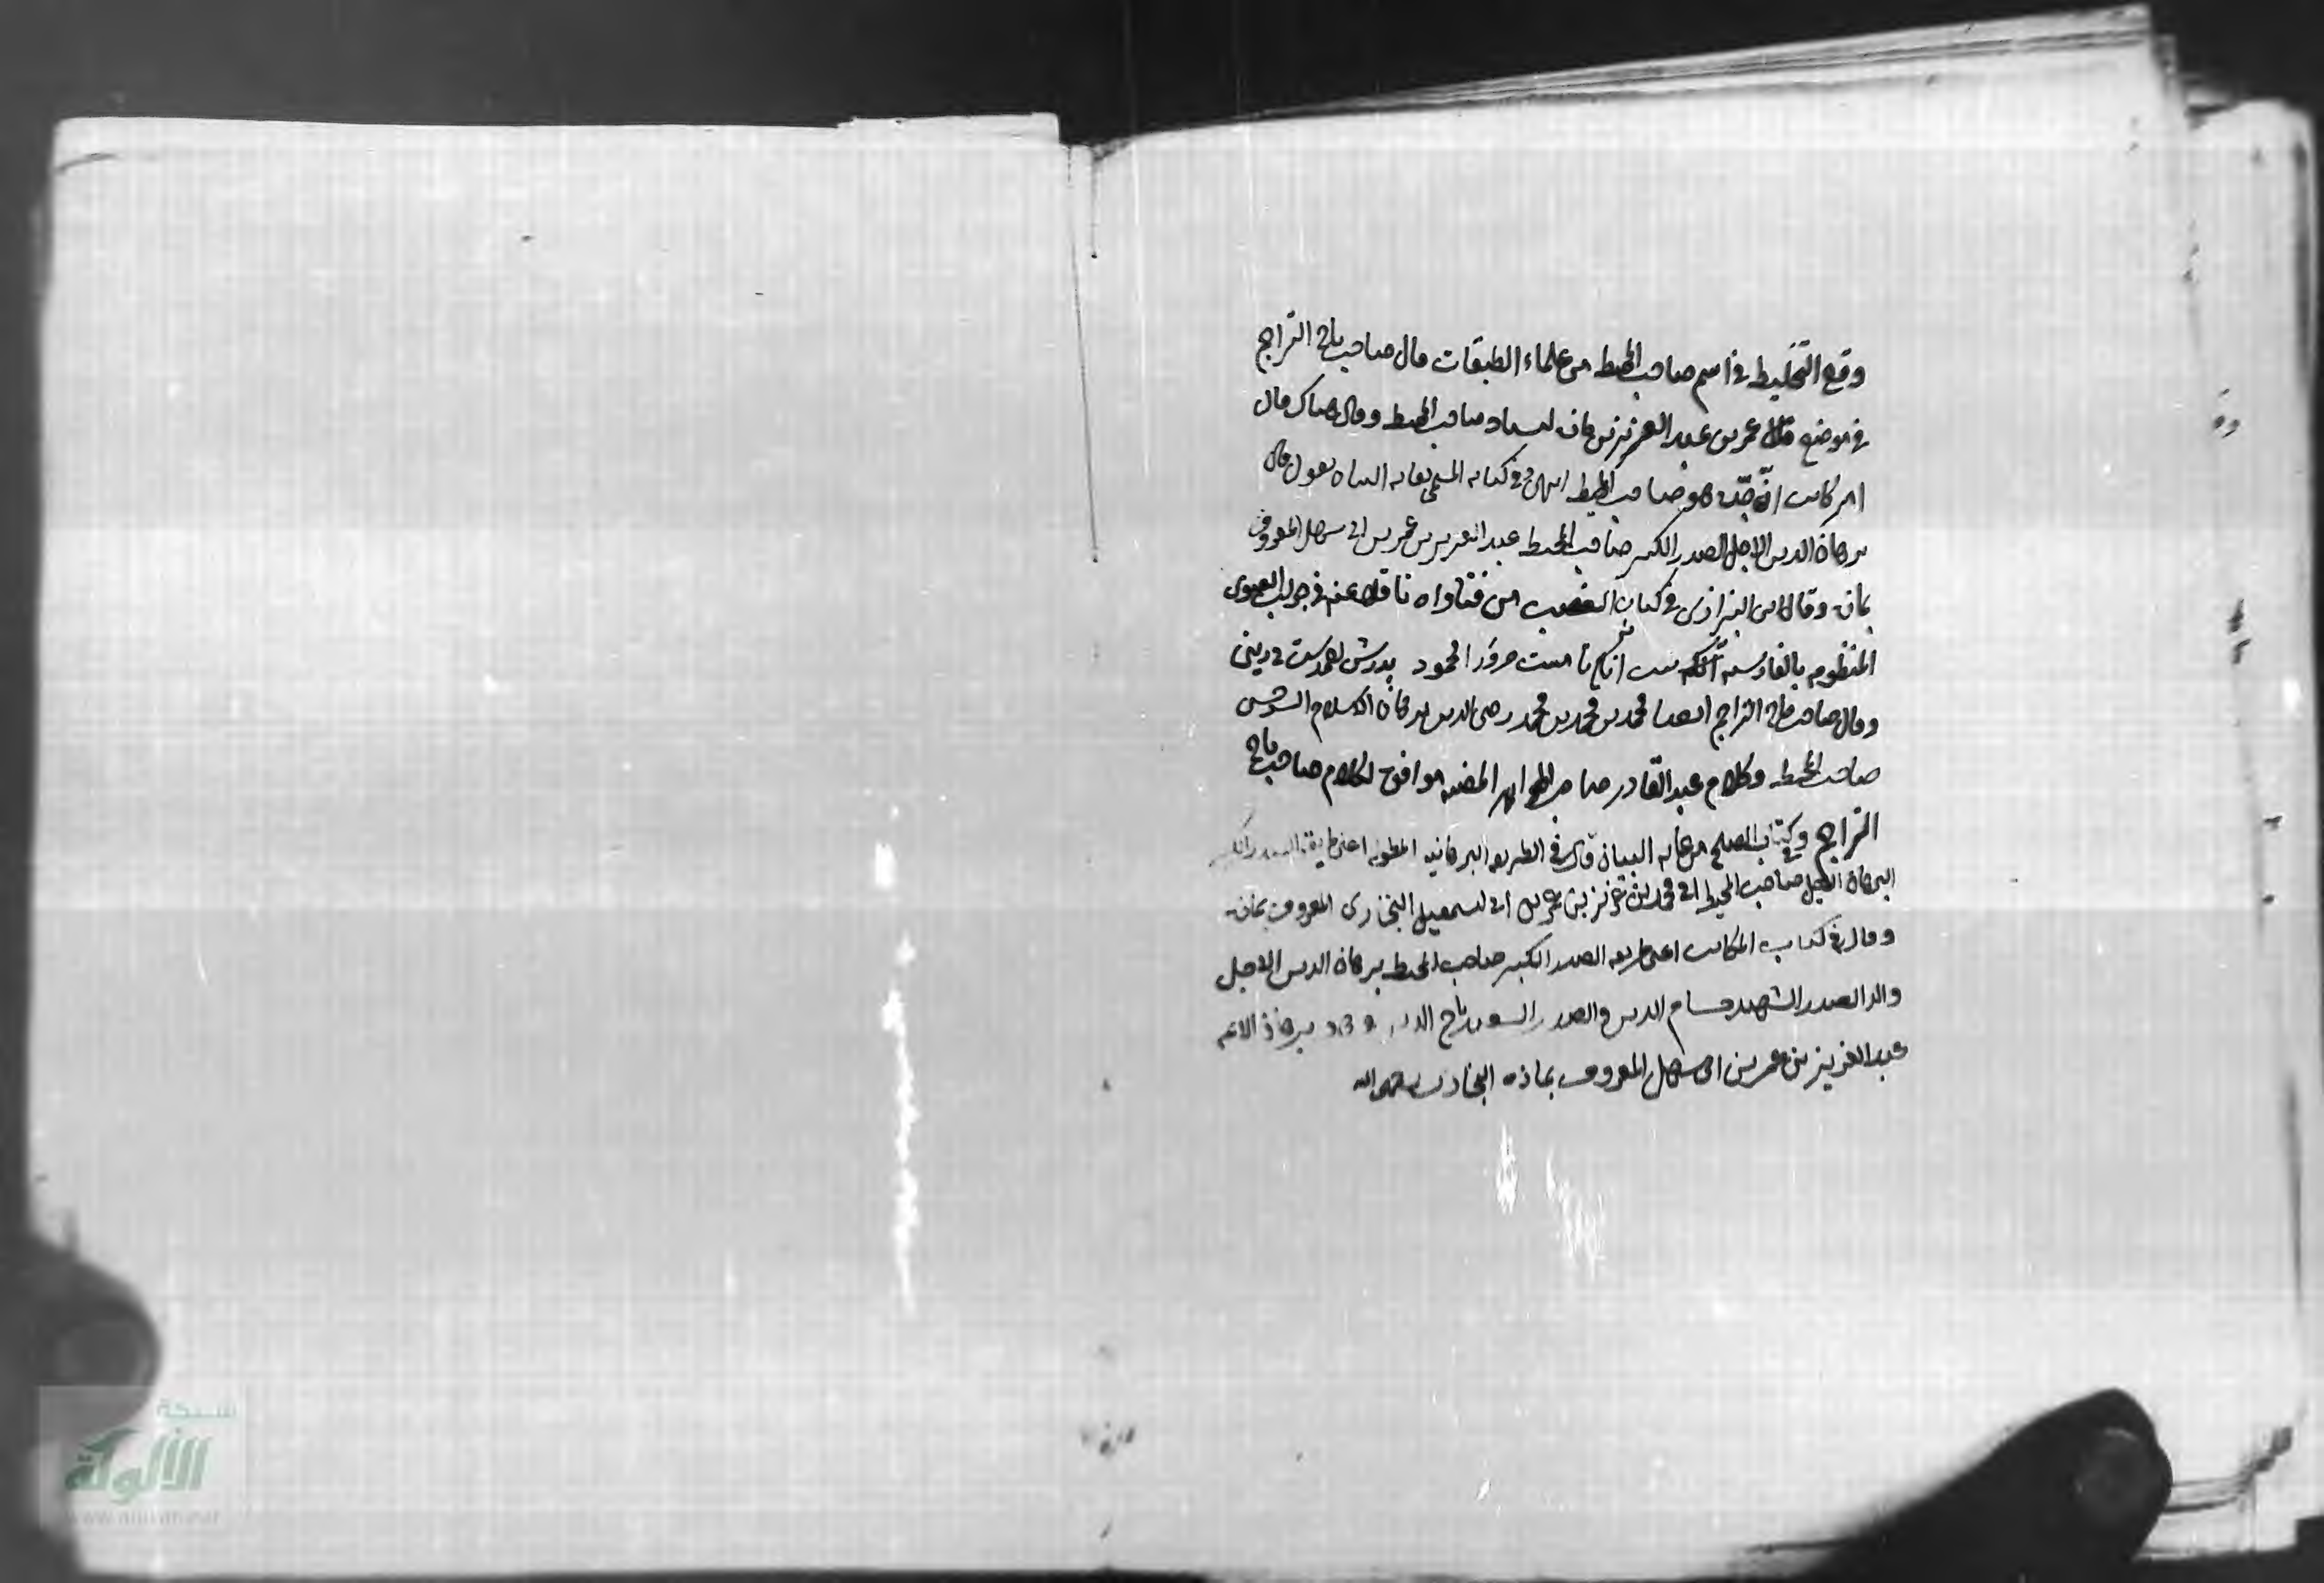 وقع التخليط في اسم صاحب المحيط من علماء الطبقات قال صاحب تاج التراجم
في موضع قال عمر بن عبد العزيز بن مازه صاحب المحيط وقال هناك قال
انه جده هو صاحب المحيط انتهى وفي كتابه المسمى بغايه البيان يقول قال
برهان الدين الاجل الصدر الكبير صاحب المحيط عبد العزيز بن عمر بن ابي سهل المعروف
بمازه وقال ابن البزازي في كتاب الغصب من فتاواه ناقلا عنه في جواب الفتوى
المنظوم بالفارسيه
وقال صاحب تاج التراجم ايضا محمد بن محمد بن محمد رضي الدين برهان الاسلام السرخسي
صاحب المحيط وكلام عبد القادر صاحب الجواهر المضيه موافق لكلام صاحب تاج
التراجم وفي كتاب الصلح من غايه البيان قال في الطريقه البرهانيه المطوله اعني طريقه الصدر الكبير
البرهان الاجل صاحب المحيط ابي محمد بن عزيز بن عمر بن ابي اسمعيل البخاري المعروف بمازه
وقال في كتاب المكاتب اعني طريقه الصدر الكبير صاحب المحيط برهان الدين الاجل
والد الصدر الشهيد حسام الدين والصدر السعيد تاج الدين وهو برهان الائمه
عبد العزيز بن عمر بن ابي سهل المعروف بمازه البخاري رحمهم الله
شبكة
الألوكة